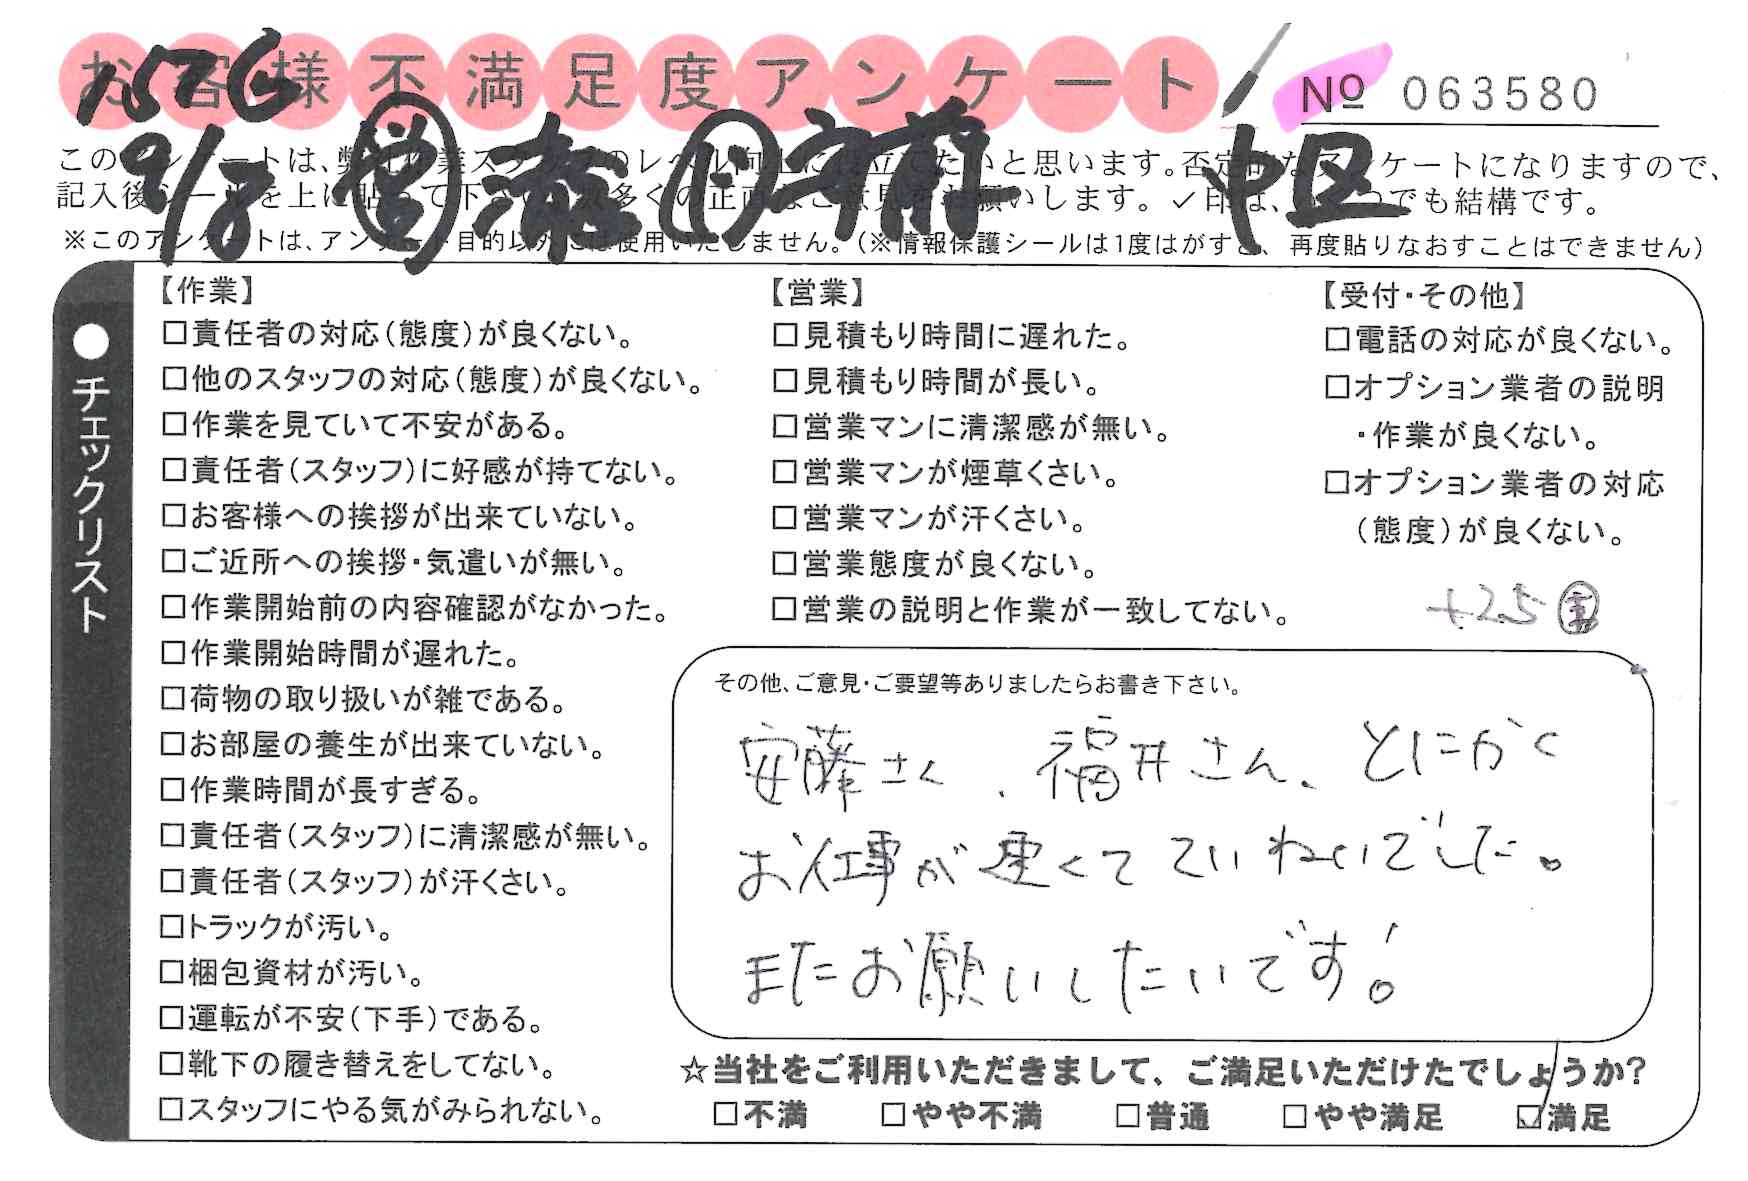 お客様不満足度アンケート
№ 063580
1576
9/8 営 日 市前 中区
このアンケートは、弊社作業スタッフのレベル向上に役立てたいと思います。否定的なアンケートになりますので、
記入後シールを上に貼って下さい。数多くの正直なご意見をお願いします。✓印は、いくつでも結構です。
※このアンケートは、アンケート目的以外には使用いたしません。(※情報保護シールは1度はがすと、再度貼りなおすことはできません)
●チェックリスト
【作業】
□責任者の対応(態度)が良くない。
□他のスタッフの対応(態度)が良くない。
□作業を見ていて不安がある。
□責任者(スタッフ)に好感が持てない。
□お客様への挨拶が出来ていない。
□ご近所への挨拶・気遣いが無い。
□作業開始前の内容確認がなかった。
□作業開始時間が遅れた。
□荷物の取り扱いが雑である。
□お部屋の養生が出来ていない。
□作業時間が長すぎる。
□責任者(スタッフ)に清潔感が無い。
□責任者(スタッフ)が汗くさい。
□トラックが汚い。
□梱包資材が汚い。
□運転が不安(下手)である。
□靴下の履き替えをしてない。
□スタッフにやる気がみられない。
【営業】
□見積もり時間に遅れた。
□見積もり時間が長い。
□営業マンに清潔感が無い。
□営業マンが煙草くさい。
□営業マンが汗くさい。
□営業態度が良くない。
□営業の説明と作業が一致してない。
【受付・その他】
□電話の対応が良くない。
□オプション業者の説明
・作業が良くない。
□オプション業者の対応
(態度)が良くない。
+25
その他、ご意見・ご要望等ありましたらお書き下さい。
安藤さん、福井さん、とにかく
お仕事が速くてていねいでした。
またお願いしたいです!
☆当社をご利用いただきまして、ご満足いただけたでしょうか?
□不満 □やや不満 □普通 □やや満足 ☑満足